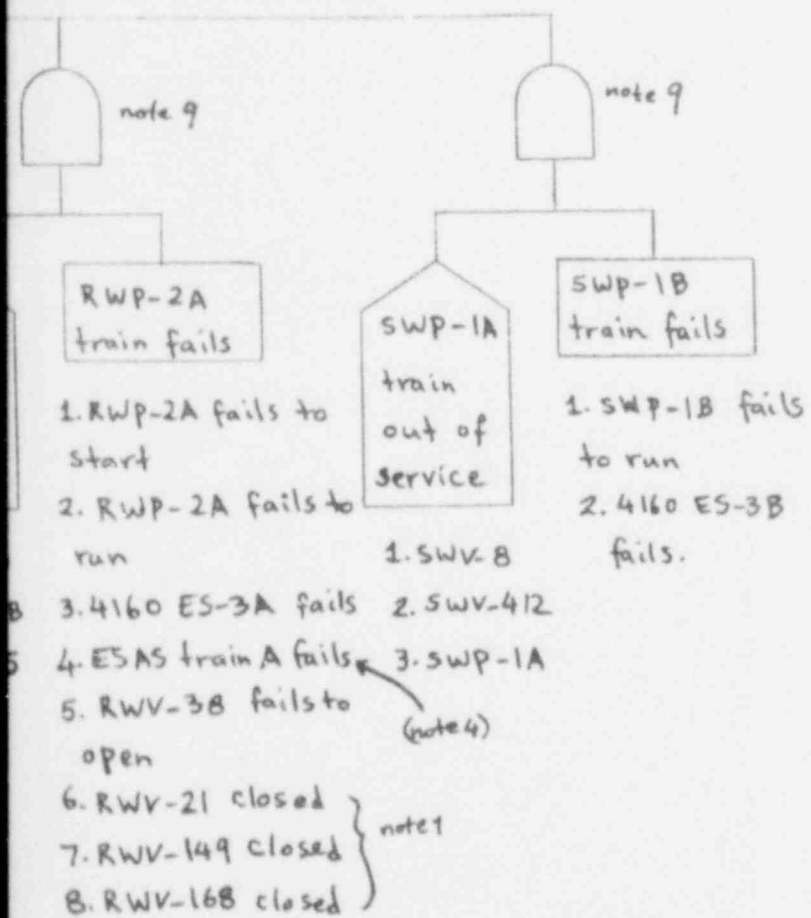 note 9
note 9
RWP-2A
train fails
SWP-1A
train
out of
service
SWP-1B
train fails
1. RWP-2A fails to
start
2. RWP-2A fails to
run
3. 4160 ES-3A fails
4. ESAS train A fails
(note 4)
5. RWV-38 fails to
open
6. RWV-21 closed
7. RWV-149 closed
8. RWV-168 closed
note 1
1. SWV-8
2. SWV-412
3. SWP-1A
1. SWP-1B fails
to run
2. 4160 ES-3B
fails.